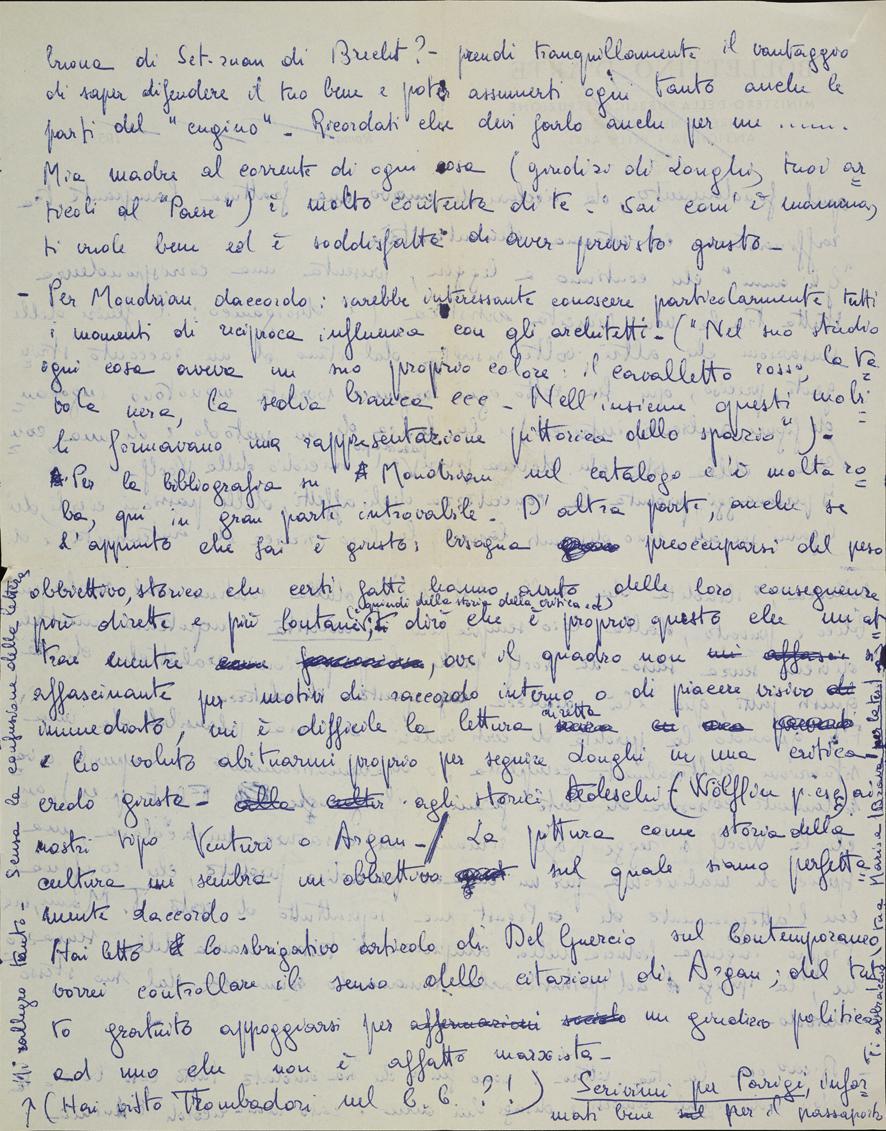 buona di Set-zuan di Brecht? - prendi tranquillamente il vantaggio
di saper difendere il tuo bene e poter assumerti ogni tanto anche le
parti del "cugino" - Ricordati che devi farlo anche per me ......
Mia madre al corrente di ogni cosa (giudizi di Longhi, tuoi ar
ticoli al "Paese") è molto contenta di te - Sai com'è mamma,
ti vuole bene ed è soddisfatta di aver previsto giusto -
- Per Mondrian daccordo: sarebbe interessante conoscere particolarmente tutti
i momenti di reciproca influenza con gli architetti - ("Nel suo studio
ogni cosa aveva un suo proprio colore: il cavalletto rosso, la ta
vola nera, la sedia bianca ecc - Nell'insieme questi mobi
li formavano una rappresentazione pittorica dello spazio") -
Per la bibliografia su Mondrian nel catalogo c'è molta ro
ba, qui in gran parte introvabile - D'altra parte, anche se
l'appunto che fai è giusto: bisogna preoccuparsi del peso
obbiettivo, storico che certi fatti hanno avuto delle loro conseguenze
più dirette e più lontane (quindi della storia della critica ecc), ti dirò che è proprio questo che mi at
trae mentre, ove il quadro non sia
affascinante per motivi di raccordo interno o di piacere visivo
immediato, mi è difficile la lettura diretta
Ho voluto abituarmi proprio per seguire Longhi in una critica
credo giusta - agli storici tedeschi (Wölfflin p. es.) ai
nostri tipo Venturi o Argan - / La pittura come storia della
cultura mi sembra un obbiettivo sul quale siamo perfetta
mente daccordo -
Hai letto lo sbrigativo articolo di Del Guercio sul Contemporaneo
vorrei controllare il senso delle citazioni di Argan; del tut
to gratuito appoggiarsi per un giudizio politico
ad uno che non è affatto marxista -
(Hai visto Trombadori nel C.C. ?!) Scrivimi per Parigi, infor
mati bene per il passaporto
Mi rallegro tanto - Scusa la confusione della lettera
Ti abbraccio tua Marisa (Brava per la tesi)